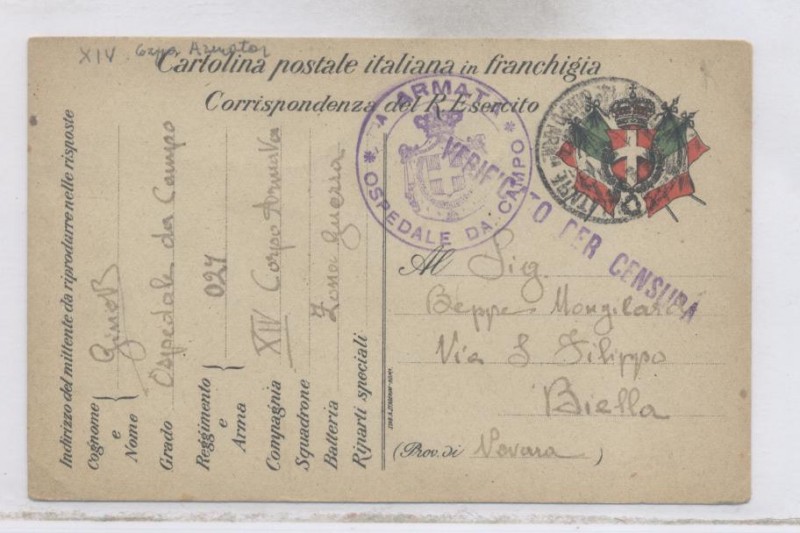 XIV Corpo Armata
Cartolina postale italiana in franchigia
Corrispondenza del R. Esercito
ARMATA
* OSPEDALE DA CAMPO *
VERIFICATO PER CENSURA
Indirizzo del mittente da riprodurre nelle risposte
Cognome e Nome { Gino B
Grado Ospedale da Campo
Reggimento e Arma { 027
Compagnia XIV Corpo Armata
Squadrone
Batteria Zona guerra
Riparti speciali
Al Sig.
Beppe
Via S Filippo
Biella
(Prov. di Novara)